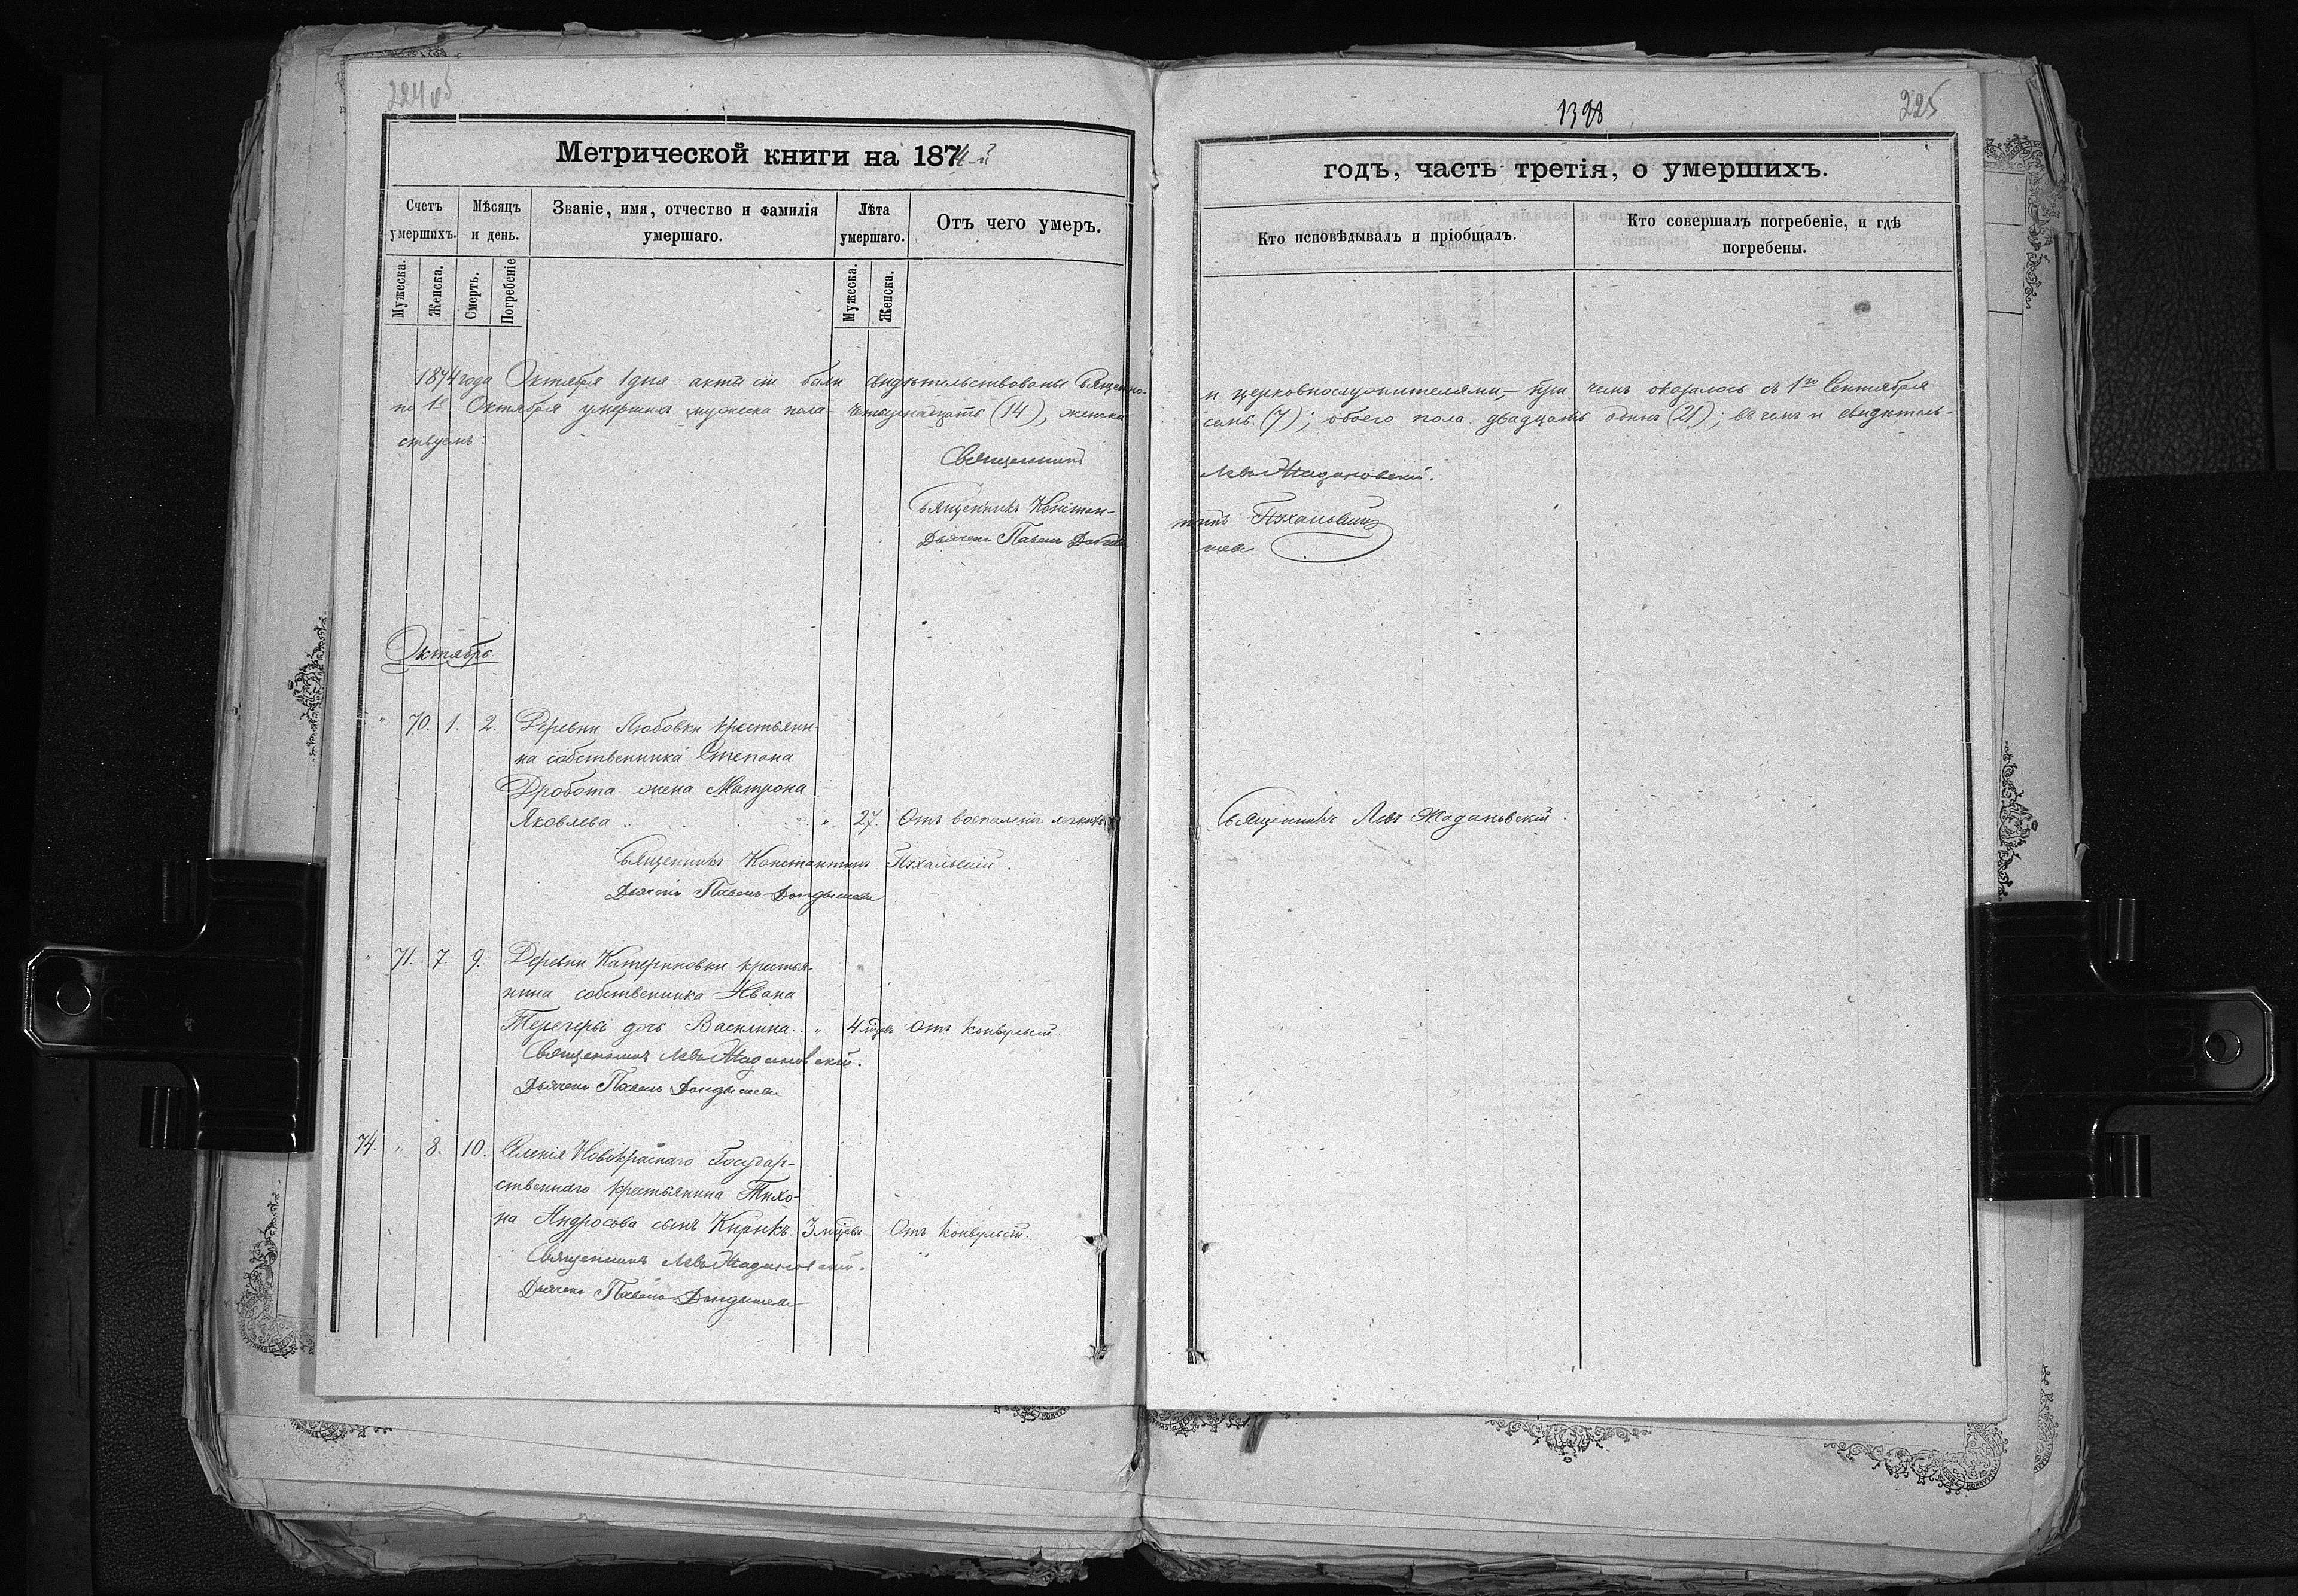 224 об
Метрической книги на 1874-й
Счетъ умершихъ.
Мѣсяцъ и день.
Званіе, имя, отчество и фамилія умершаго.
Лѣта умершаго.
Отъ чего умеръ.
Мужеска.
Женска.
Смерть.
Погребеніе
Мужеска.
Женска.
1874 года Октября 1 дня акты сіи были свидѣтельствованы Священно-
по 1е Октября умершихъ мужеска пола четырнадцать (14), женска
ствуемъ:
Священникъ
Священникъ Констан-
Дьячекъ Павелъ
Октябрь.
" 70. 1. 2. Деревни Любовки крестьяни-
на собственника Степана
Дробота жена Матрона
Яковлева " 27. Отъ воспаленія легкихъ
Священникъ Константинъ Пхальскій.
Дьячекъ Павелъ
" 71. 7. 9. Деревни Катериновки крестья-
нина собственника Ивана
дочь Василина " 4 мѣсяц Отъ конвульсій.
Священникъ Левъ Жадановскій.
Дьячекъ Павелъ
74. " 8. 10. Селенія Новокраснаго Государ-
ственнаго крестьянина Тихо-
на Андросова сынъ Кирикъ 3 мѣсяц Отъ конвульсій.
Священникъ Левъ Жадановскій.
Дьячекъ Павелъ
225
годъ, часть третія, о умершихъ.
Кто исповѣдывалъ и пріобщалъ.
Кто совершалъ погребеніе, и гдѣ погребены.
и церковнослужителями, – при чемъ оказалось съ 1го Сентября
семь (7); обоего пола двадцать одинъ (21); въ чемъ и свидѣтель-
Левъ Жадановскій.
тинъ Пхальскій
Священникъ Левъ Жадановскій.